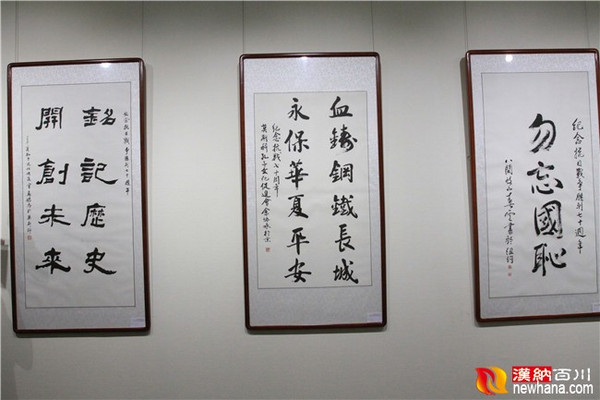 銘記歷史
開創未來
血鑄鋼鐵長城
永保華夏平安
紀念抗战七十周年
莫斯科孔子文化促進會
紀念抗日戰爭勝利七十週年
勿忘國恥
漢納百川
newhana.com